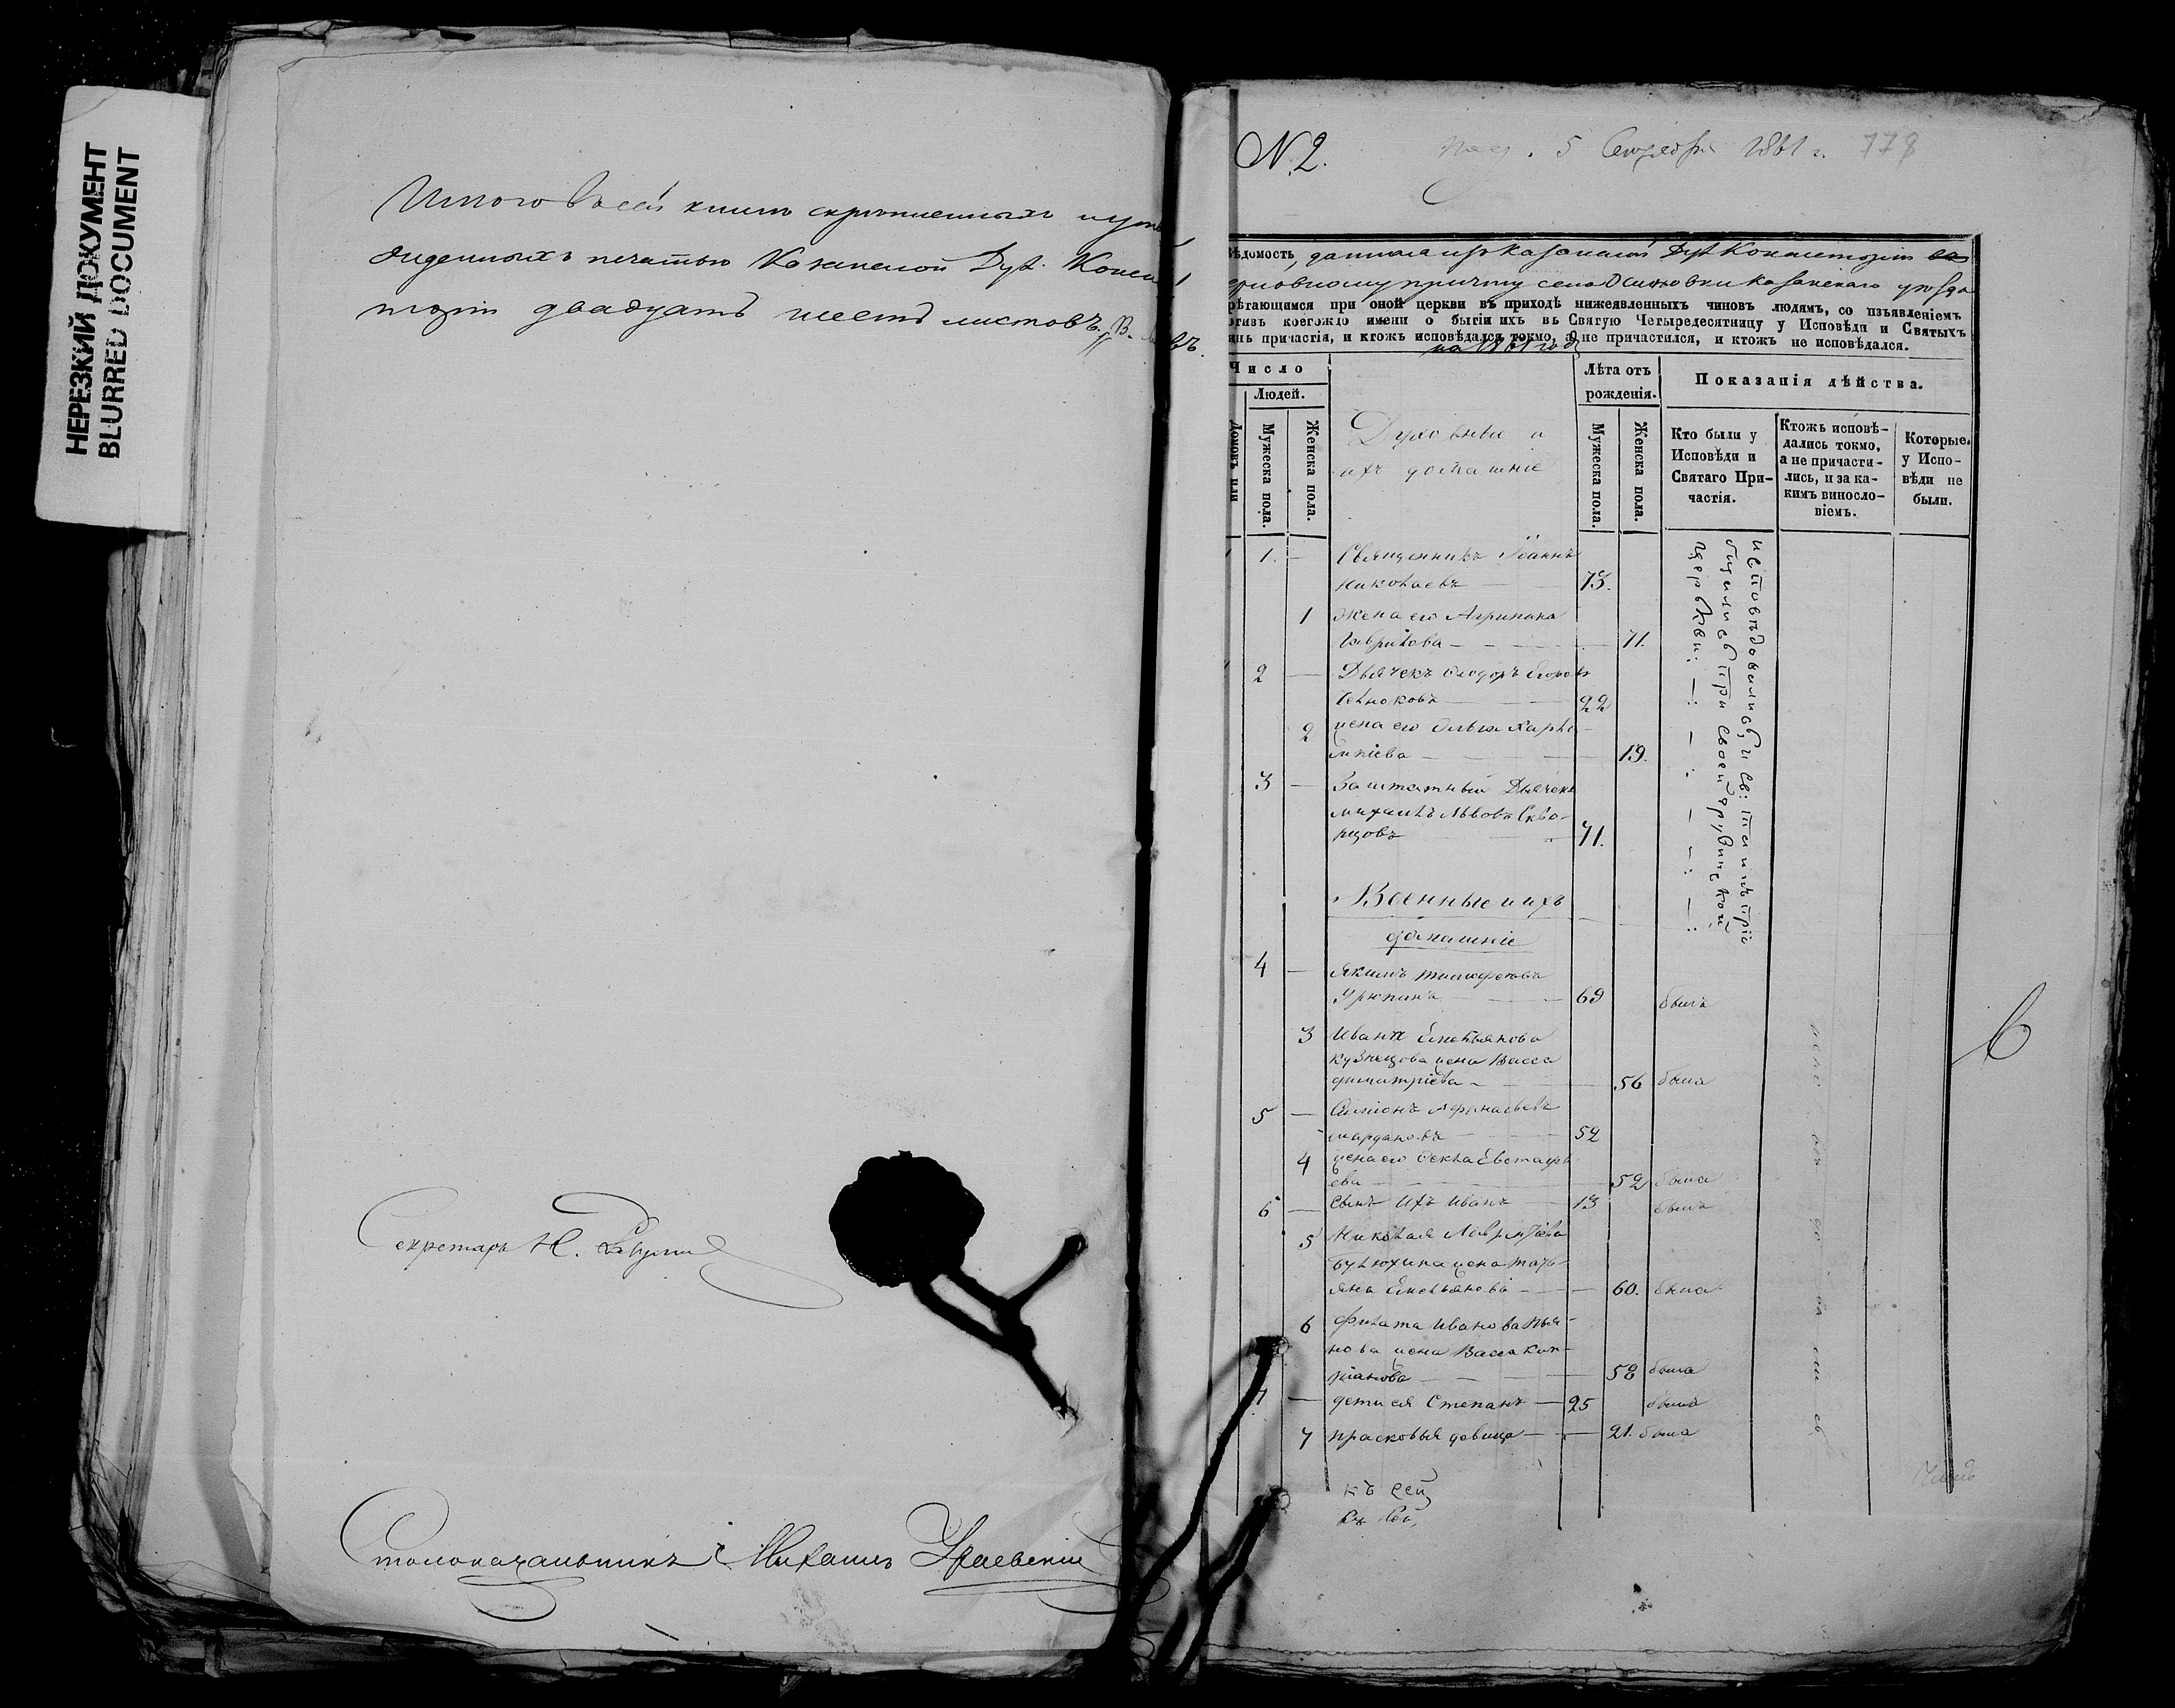 НЕРЕЗКИЙ ДОКУМЕНТ
BLURRED DOCUMENT
Итого въ сей книгѣ скрѣпленныхъ и утвер
жденныхъ печатью Казанской Дух. Консис
торіи двадцать шесть листовъ.
Секретарь Н.
Столоначальникъ Михаилъ
N 2.
5 Сентября 1861 г. 778
Вѣдомость, данная изъ Казанской Дух. Консисторіи
церковному причту села Осиновки Казанскаго уѣзда
рѣтающимся при оной церкви въ приходѣ нижеявленныхъ чиновъ людямъ, со изъявленіемъ
отивъ коегождо имени о бытіи ихъ въ Святую Четыредесятницу у Исповѣди и Святыхъ
инъ причастія, и ктожъ исповѣдался токмо, а не причастился, и ктожъ не исповѣдался.
на 1861 годъ
Число
Людей.
Домовъ или
Мужеска пола.
Женска пола.
Духовные и
ихъ домашніе
Лѣта отъ
рожденія.
Мужеска пола.
Женска пола.
Показанія дѣйства.
Кто были у
Исповѣди и
Святаго При-
частія.
Ктожъ исповѣ-
дались токмо,
а не причасти-
лись, и за ка-
кимъ винсло-
віемъ.
Которые
у Испо-
вѣди не
были.
1. — Священникъ Іоаннъ
Николаевъ — 73.
1 Жена его Агрипина
Гаврилова — 71.
2 — Дьячекъ Ѳеодоръ Егоровъ
22
2 жена его Ольга Харла-
мпіева — 19.
3 — Заштатный Дьячекъ
Михаилъ Львовъ Скво-
рцовъ 71.
исповѣдовались, и св: таинъ прiо
бщились при своей приходской
церкви: — : — : — : — :
Военные и ихъ
домашніе
4 — Якимъ Тимофеевъ
Урюпинъ — 69 былъ
3 Ивана Емельянова
Кузнецова жена Васса
Димитріева — 56 была
5 — Симіонъ Афанасьевъ
Мардановъ — 52
4 жена его Ѳекла Евстафь
ева — 52 была
6 — Сынъ ихъ Иванъ — 13 былъ
5 Николая Лаврентіева
Бутюхина жена Тать-
яна Емельянова — 60. была
6 Филата Иванова Пья-
нова жена Васса Кип-
ріанова — 58 была
7 — дети ея Степанъ — 25 былъ
7 Прасковья девица — 21. была
къ сей
Къ сей,